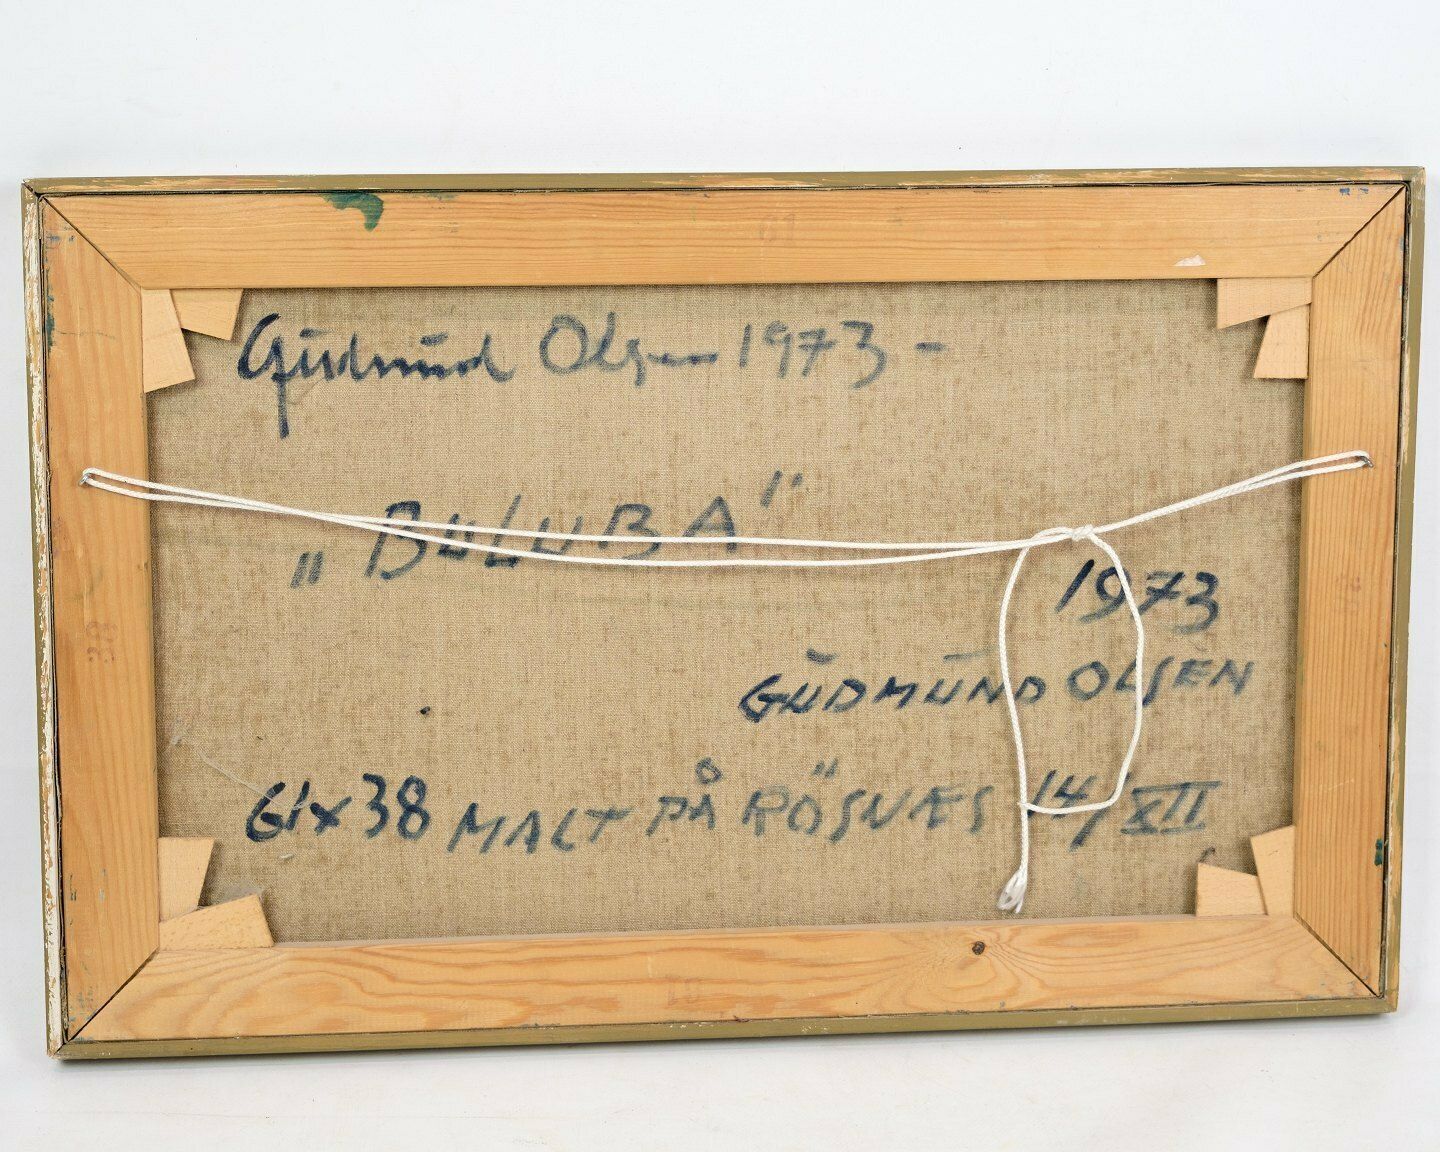 Gūdmūnd Olsen 1973 -
„BULUBA"
1973
GŪDMŪND OLSEN
61x38 MALT PÅ RÖSNÆS 14/XII
38